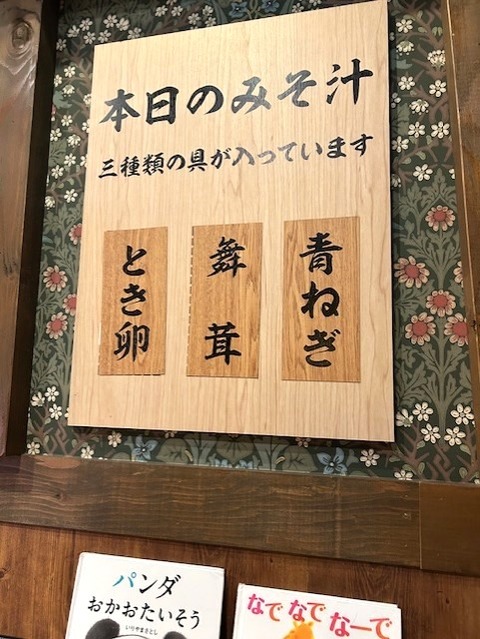 本日のみそ汁
三種類の具が入っています
青ねぎ
舞茸
とき卵
パンダ
おかおたいそう
いりやまさとし
なでなでなーで